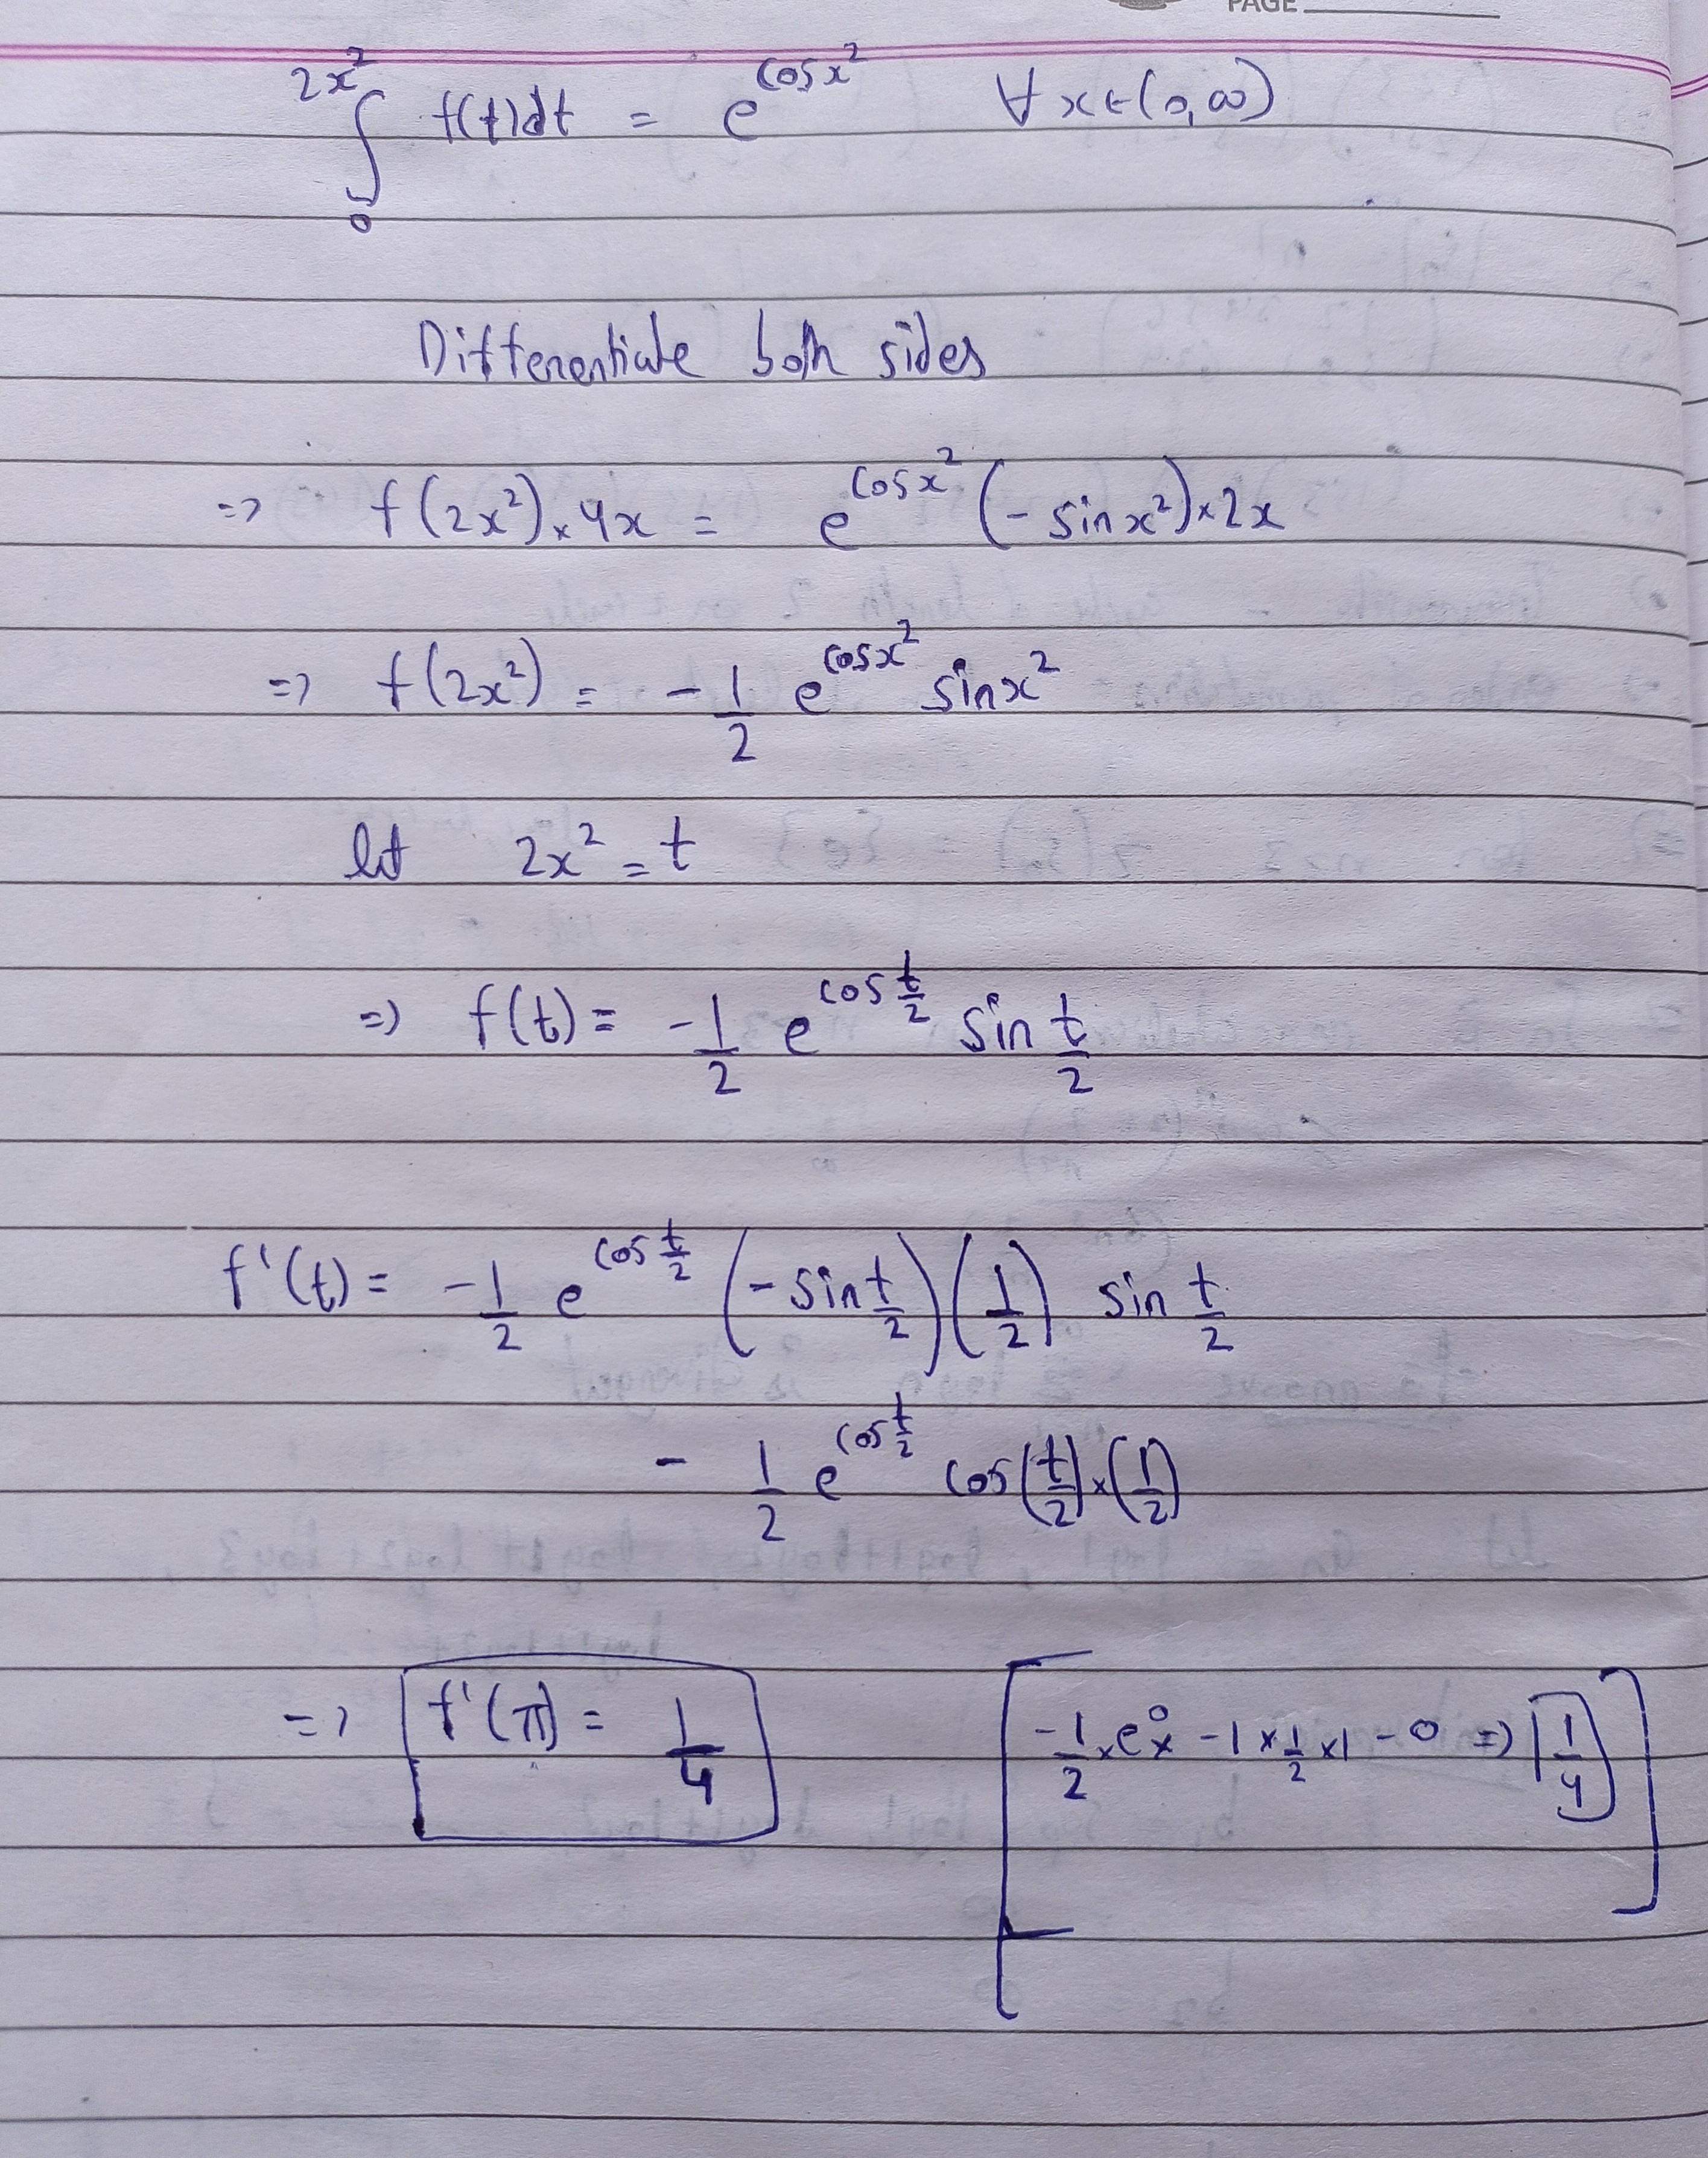 PAGE
∫₀^{2x²} f(t)dt = e^{cos x²} ∀ x ∈ (0, ∞)
Differentiate both sides
=> f(2x²) × 4x = e^{cos x²} (- sin x²) × 2x
=> f(2x²) = - 1/2 e^{cos x²} sin x²
let 2x² = t
=> f(t) = -1/2 e^{cos t/2} sin t/2
f'(t) = -1/2 e^{cos t/2} (- sin t/2) (1/2) sin t/2
- 1/2 e^{cos t/2} cos(t/2) × (1/2)
=> f'(π) = 1/4 [ -1/2 × e⁰ × -1 × 1/2 × 1 - 0 => 1/4 ]